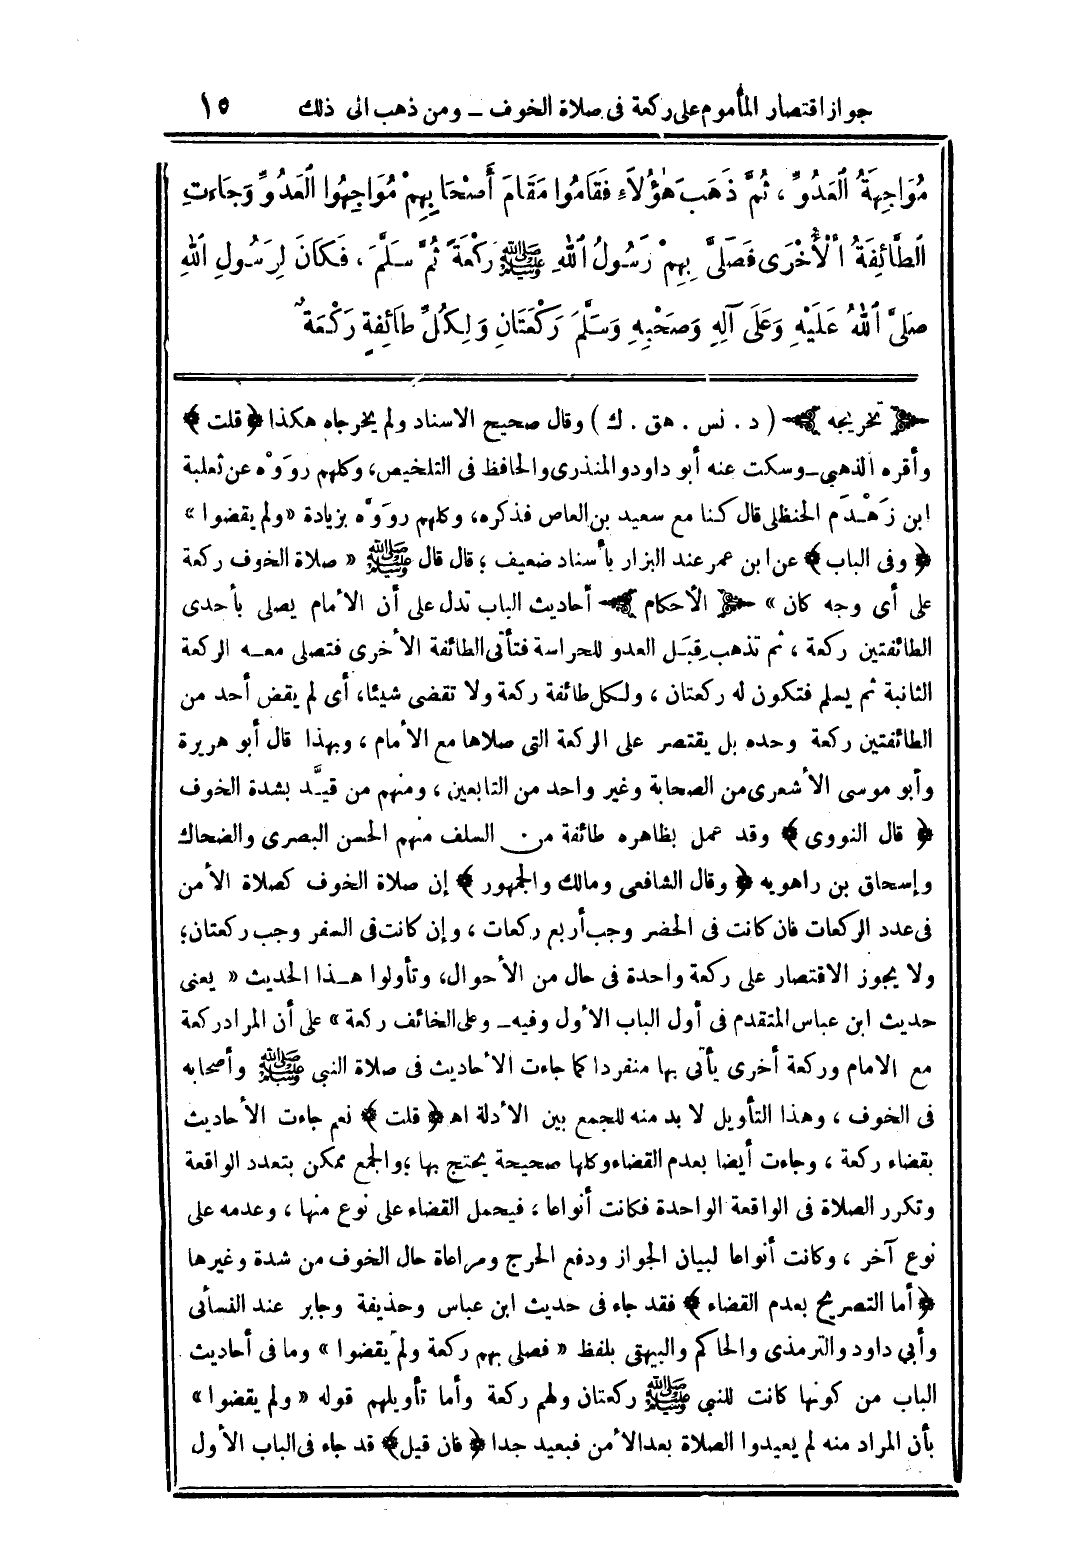 جواز اقتصار المأموم على ركعة فى صلاة الخوف ــ ومن ذهب الى ذلك ١٥
مُوَاجِهَةُ الْعَدُوِّ ، ثُمَّ ذَهَبَ هٰؤُلَاءِ فَقَامُوا مَقَامَ أَصْحَابِهِمْ مُوَاجِهُوا الْعَدُوِّ وَجَاءَتِ
الطَّائِفَةُ الْأُخْرَى فَصَلَّىٰ بِهِمْ رَسُولُ اللهِ ﷺ رَكْعَةً ثُمَّ سَلَّمَ ، فَكَانَ لِرَسُولِ اللهِ
صَلَّىٰ اللهُ عَلَيْهِ وَعَلَى آلِهِ وَصَحْبِهِ وَسَلَّمَ رَكْعَتَانِ وَلِكُلِّ طَائِفَةٍ رَكْعَةٌ
تخريجه ( د . نس . هق . ك ) وقال صحيح الاسناد ولم يخرجاه هكذا ﴿ قلت ﴾
وأقره الذهبي ــ وسكت عنه أبو داود والمنذرى والحافظ فى التلخيص، وكلهم روَوْه عن ثعلبة
ابن زَهْدَم الحنظلى قال كنا مع سعيد بن العاص فذكره، وكلهم روَوْه بزيادة « ولم يقضوا »
﴿ وفى الباب ﴾ عن ابن عمر عند البزار بأسناد ضعيف ؛ قال قال ﷺ « صلاة الخوف ركعة
على أى وجه كان » الأحكام أحاديث الباب تدل على أن الأمام يصلى بأحدى
الطائفتين ركعة ، ثم تذهب قِبَل العدو للحراسة فتأتى الطائفة الأخرى فتصلى معه الركعة
الثانية ثم يسلم فتكون له ركعتان ، ولكل طائفة ركعة ولا تقضى شيئا، أى لم يقض أحد من
الطائفتين ركعة وحده بل يقتصر على الركعة التى صلاها مع الأمام ، وبهذا قال أبو هريرة
وأبو موسى الأشعرى من الصحابة وغير واحد من التابعين ، ومنهم من قيَّد بشدة الخوف
﴿ قال النووى ﴾ وقد عمل بظاهره طائفة من السلف منهم الحسن البصرى والضحاك
وإسحاق بن راهويه ﴿ وقال الشافعى ومالك والجمهور ﴾ إن صلاة الخوف كصلاة الأمن
فى عدد الركعات فان كانت فى الحضر وجب أربع ركعات ، وإن كانت فى السفر وجب ركعتان؛
ولا يجوز الاقتصار على ركعة واحدة فى حال من الأحوال، وتأولوا هذا الحديث « يعنى
حديث ابن عباس المتقدم فى أول الباب الأول وفيه ــ وعلى الخائف ركعة » على أن المراد ركعة
مع الامام وركعة أخرى يأتى بها منفردا كما جاءت الأحاديث فى صلاة النبى ﷺ وأصحابه
فى الخوف ، وهذا التأويل لا بد منه للجمع بين الأدلة اه ﴿ قلت ﴾ نعم جاءت الأحاديث
بقضاء ركعة ، وجاءت أيضا بعدم القضاء وكلها صحيحة يحتج بها ؛ والجمع ممكن بتعدد الواقعة
وتكرر الصلاة فى الواقعة الواحدة فكانت أنواعا ، فيحمل القضاء على نوع منها ، وعدمه على
نوع آخر ، وكانت أنواعا لبيان الجواز ودفع الحرج ومراعاة حال الخوف من شدة وغيرها
﴿ أما التصريح بعدم القضاء ﴾ فقد جاء فى حديث ابن عباس وحذيفة وجابر عند النسأى
وأبي داود والترمذى والحاكم والبيهقى بلفظ « فصلى بهم ركعة ولم يقضوا » وما فى أحاديث
الباب من كونها كانت للنبى ﷺ ركعتان ولهم ركعة وأما تأويلهم قوله « ولم يقضوا »
بأن المراد منه لم يعيدوا الصلاة بعد الأمن فبعيد جدا ﴿ فان قيل ﴾ قد جاء فى الباب الأول